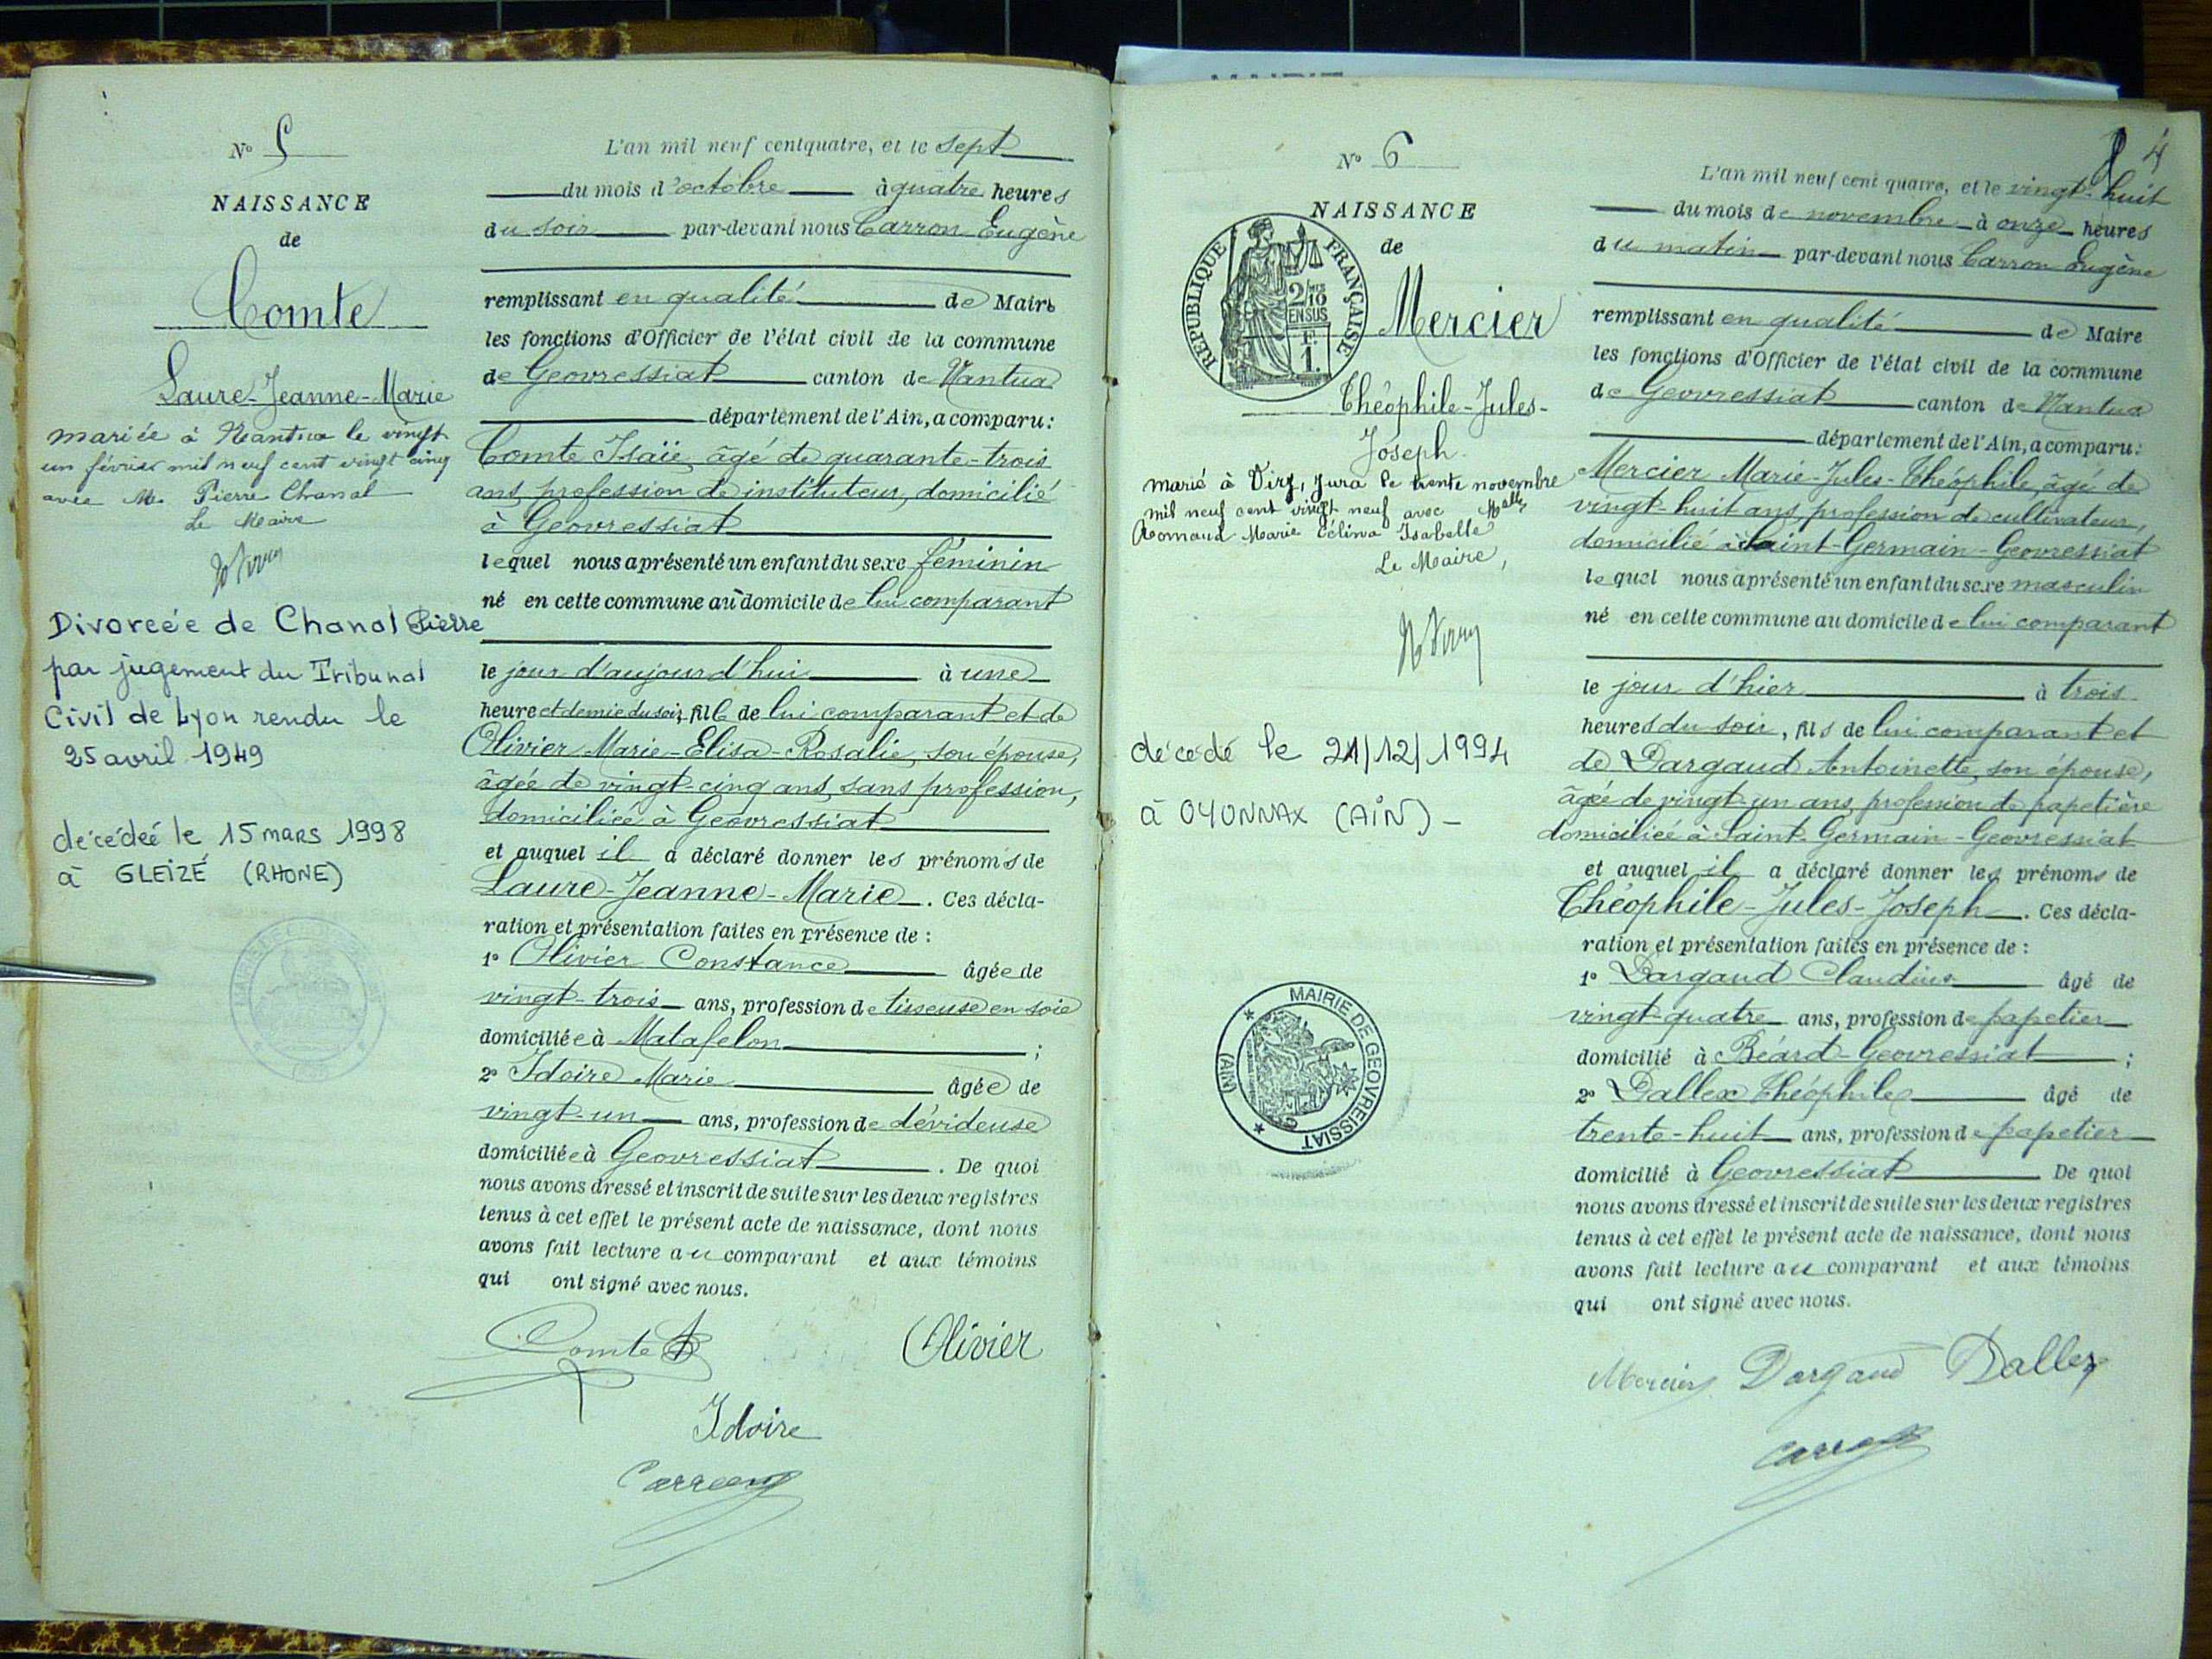 N° 5
NAISSANCE
de
Comte
Laure-Jeanne-Marie
mariée à Nantua le vingt
un février mil neuf cent vingt cinq
avec M. Pierre Chanal
Le Maire
Divorcéée de Chanal Pierre
par jugement du Tribunal
Civil de Lyon rendu le
25 avril 1949
décédée le 15 mars 1998
à GLEIZÉ (RHONE)
L'an mil neuf cent quatre, et le sept
du mois d'octobre à quatre heures
du soir par-devant nous Carron Eugène
remplissant en qualité de Maire
les fonctions d'Officier de l'état civil de la commune
de Geovressiat canton de Nantua
département de l'Ain, a comparu:
Comte Isaïe, âgé de quarante-trois
ans, profession de instituteur, domicilié
à Geovressiat
lequel nous a présenté un enfant du sexe féminin
né en cette commune au domicile de lui comparant
le jour d'aujourd'hui à une
heure et demie du soir, fille de lui comparant et de
Olivier Marie-Elisa-Rosalie, son épouse,
âgée de vingt-cinq ans, sans profession,
domiciliée à Geovressiat
et auquel il a déclaré donner les prénoms de
Laure-Jeanne-Marie. Ces décla-
ration et présentation faites en présence de :
1° Olivier Constance âgée de
vingt-trois ans, profession de tisseuse en soie
domiciliée à Matafelon ;
2° Idoire Marie âgée de
vingt-un ans, profession de dévideuse
domiciliée à Geovressiat. De quoi
nous avons dressé et inscrit de suite sur les deux registres
tenus à cet effet le présent acte de naissance, dont nous
avons fait lecture au comparant et aux témoins
qui ont signé avec nous.
Comte Olivier
Idoire
Carron
4
N° 6
NAISSANCE
de
REPUBLIQUE FRANÇAISE
2/10
EN SUS
F.
1.
Mercier
Théophile-Jules-
Joseph
marié à Viry, Jura le trente novembre
mil neuf cent vingt neuf avec Melle
Romand Marie Célina Isabelle
Le Maire,
décédé le 21/12/1994
à OYONNAX (AIN) -
MAIRIE DE GEOVREISSIAT
(AIN)
L'an mil neuf cent quatre, et le vingt-huit
du mois de novembre à onze heures
du matin par-devant nous Carron Eugène
remplissant en qualité de Maire
les fonctions d'Officier de l'état civil de la commune
de Geovressiat canton de Nantua
département de l'Ain, a comparu:
Mercier Marie-Jules-Théophile, âgé de
vingt-huit ans, profession de cultivateur,
domicilié à Saint-Germain-Geovressiat
lequel nous a présenté un enfant du sexe masculin
né en cette commune au domicile de lui comparant
le jour d'hier à trois
heures du soir, fils de lui comparant et
de Dargaud Antoinette, son épouse,
âgée de vingt-un ans, profession de papetière
domiciliée à Saint-Germain-Geovressiat
et auquel il a déclaré donner les prénoms de
Théophile-Jules-Joseph. Ces décla-
ration et présentation faites en présence de :
1° Dargaud Claudius âgé de
vingt-quatre ans, profession de papetier
domicilié à Béard-Geovressiat ;
2° Dallex Théophile âgé de
trente-huit ans, profession de papetier
domicilié à Geovressiat De quoi
nous avons dressé et inscrit de suite sur les deux registres
tenus à cet effet le présent acte de naissance, dont nous
avons fait lecture au comparant et aux témoins
qui ont signé avec nous.
Mercier Dargaud Dallex
Carron